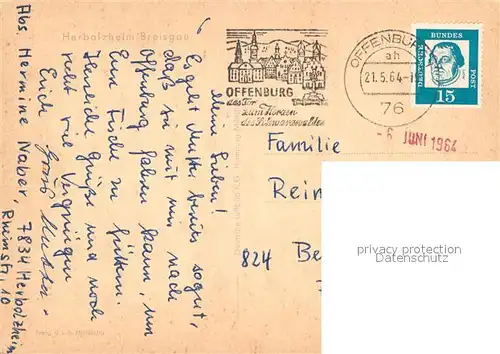 Herbolzheim Breisgau
Abs. Hermine Naber, 7834 Herbolzheim
Rheinstr. 10
Meine Lieben!
Es geht Mutti bereits so gut,
daß sie mit mir nach
Offenburg fahren kann, um
Eure Fische zu füttern.
Herzliche Grüße und noch
recht viel Vergnügen
Euch
OFFENBURG
das Tor
zum Herzen
des Schwarzwaldes
OFFENBURG
ah
21.5.64-1
76
DEUTSCHE BUNDES POST
15
6 JUNI 1964
Familie
Rei
824 Be
privacy protection
Datenschutz